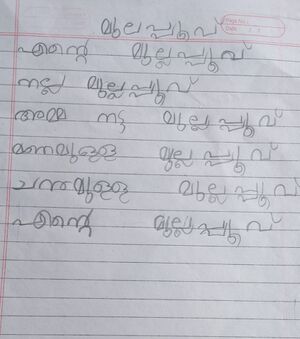 മുല്ലപ്പൂവ്
എന്റെ മുല്ലപ്പൂവ്
നല്ല മുല്ലപ്പൂവ്
അമ്മ നട്ട മുല്ലപ്പൂവ്
മണമുള്ള മുല്ലപ്പൂവ്
ചന്തമുള്ള മുല്ലപ്പൂവ്
എന്റെ മുല്ലപ്പൂവ്